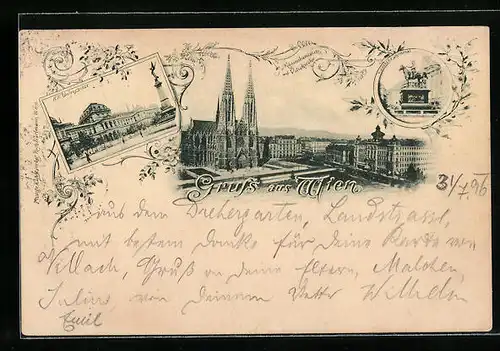 Gruss aus Wien
31/7 96
aus dem Drehergarten, Landstrasse,
mit bestem Danke für deine Karte von
Villach, Gruß an deine Eltern, Malchen,
Julius von Deinem Vetter Wilhelm
Emil